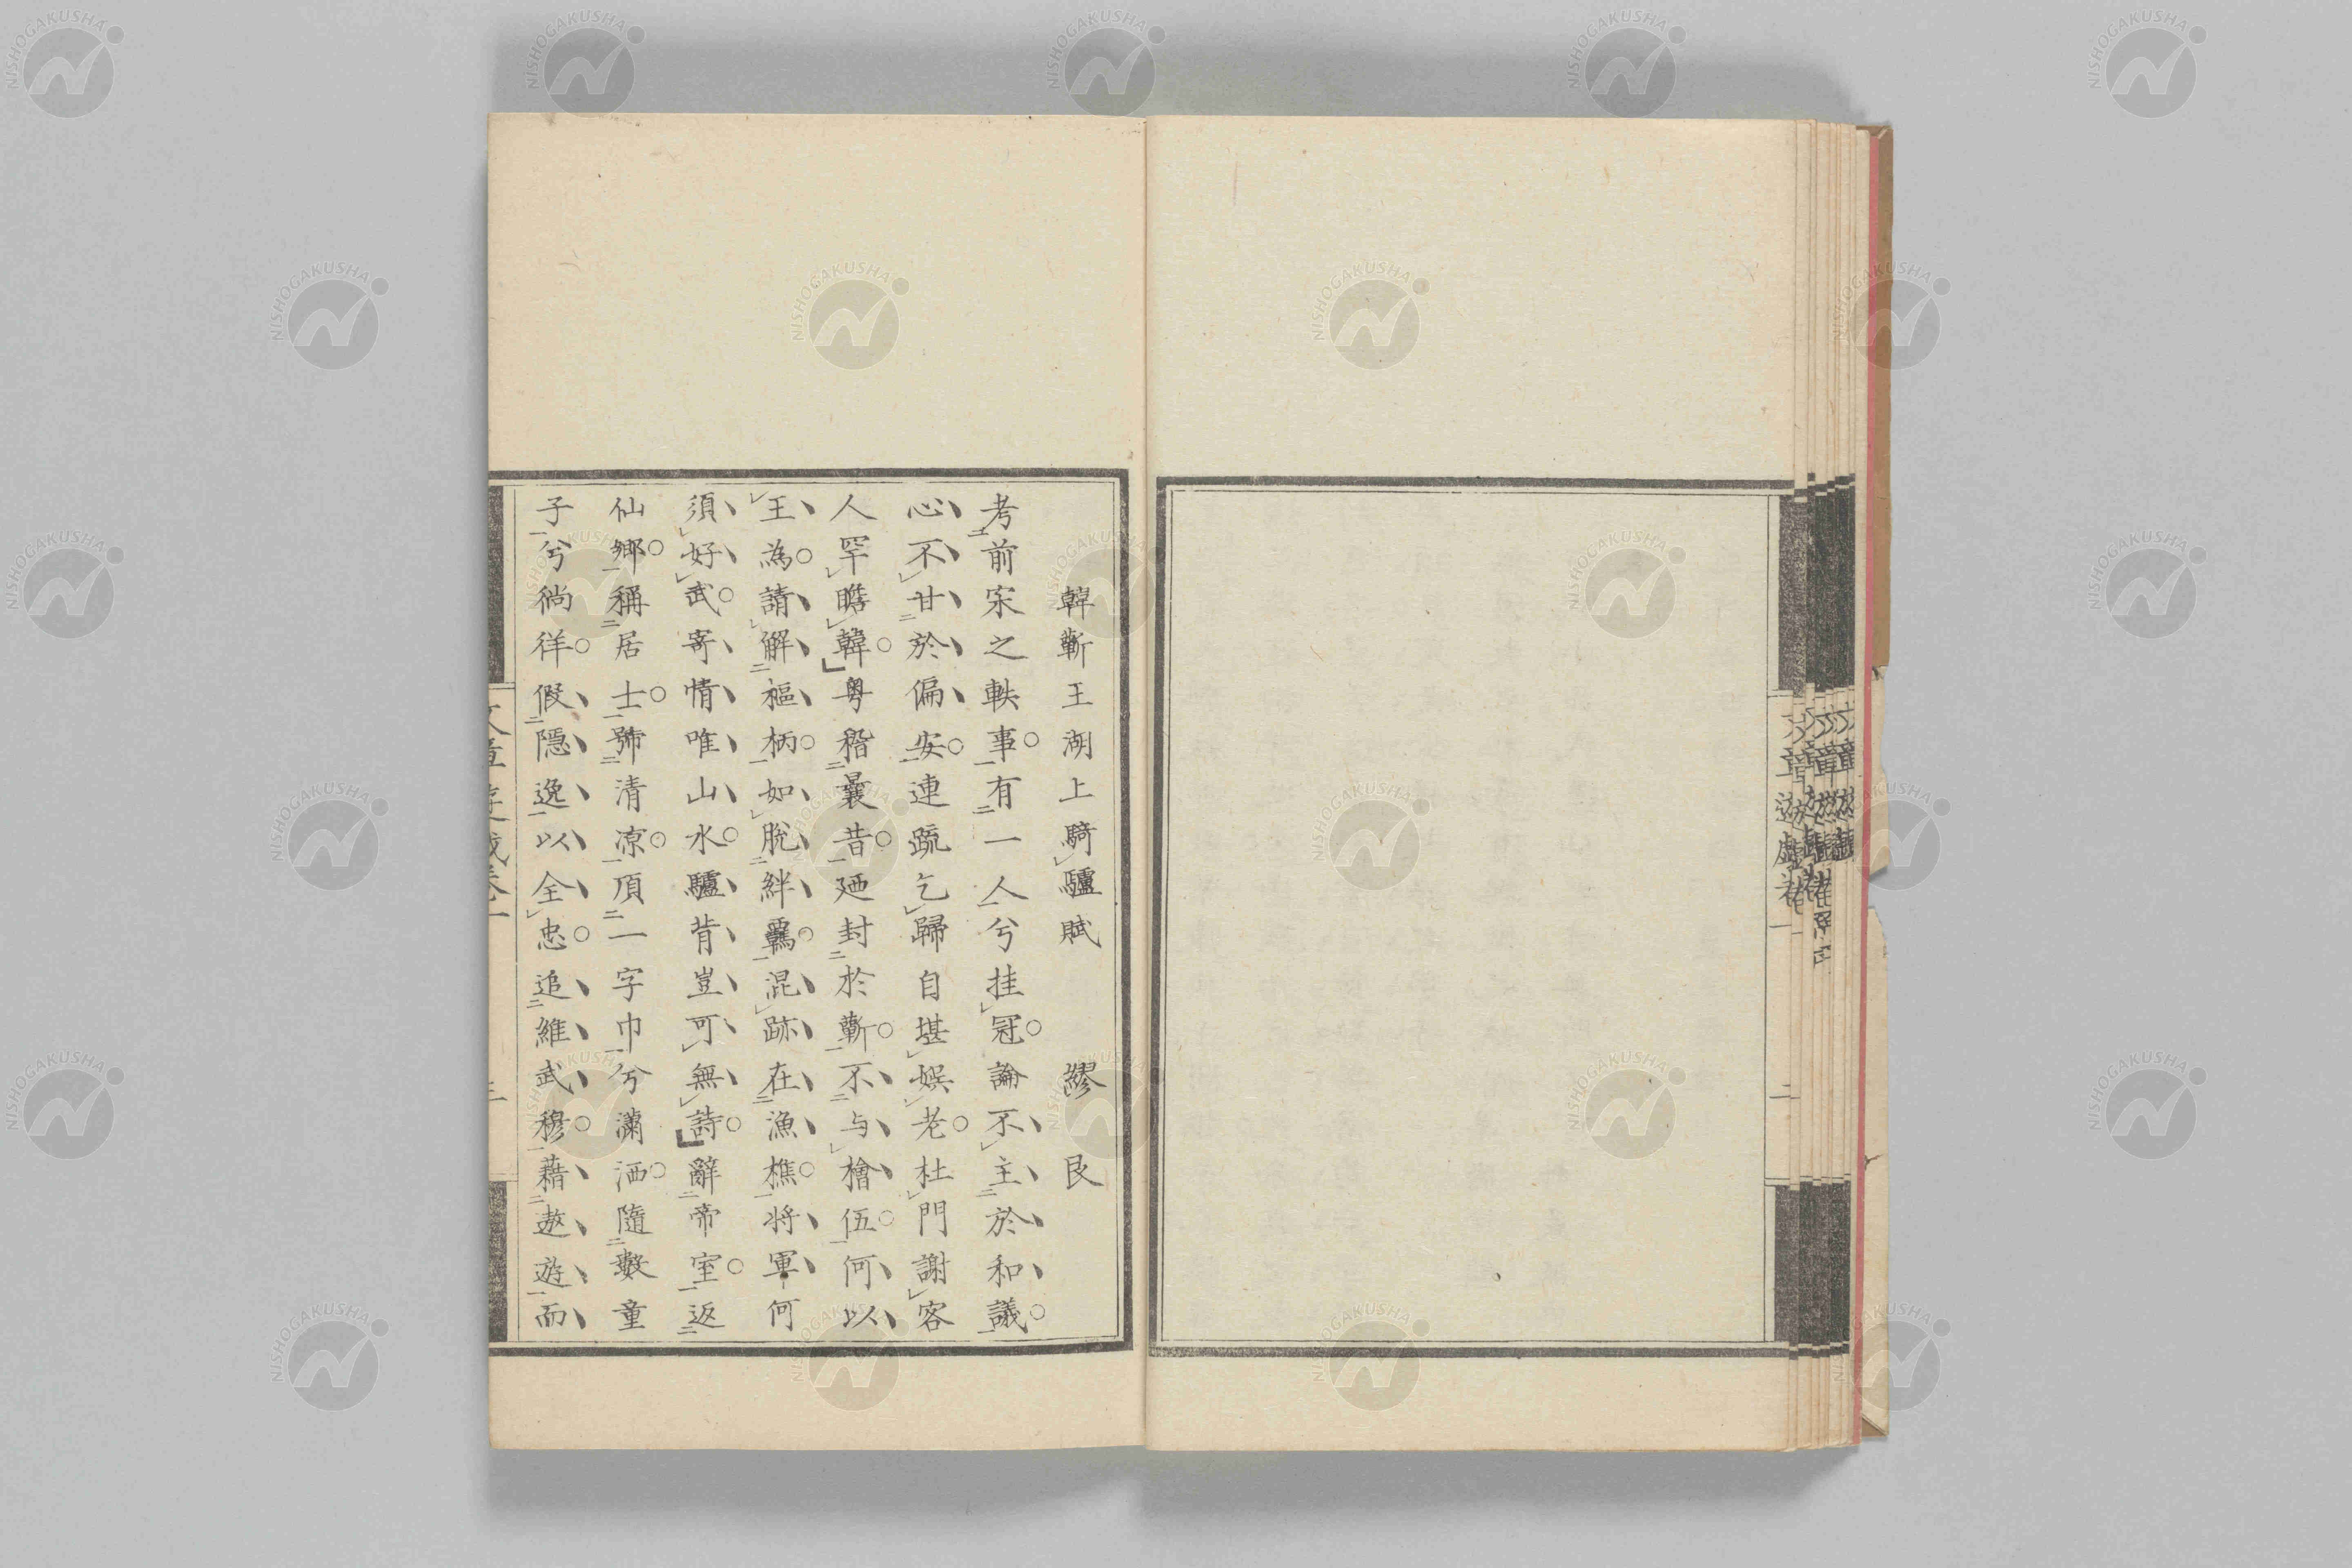 韓蘄王湖上騎驢賦 繆艮
考前宋之軼事有一人兮挂冠論不主於和議
心不甘於偏安連疏乞歸自堪娛老杜門謝客
人罕瞻韓粤稽曩昔廼封於蘄不与檜伍何以
王為請解樞柄如脫絆羈混跡在漁樵将軍何
須好武寄情唯山水驢背豈可無詩辭帝室返
仙鄉稱居士號清凉頂一字巾兮瀟洒隨數童
子兮徜徉假隱逸以全忠追維武穆藉遨遊而